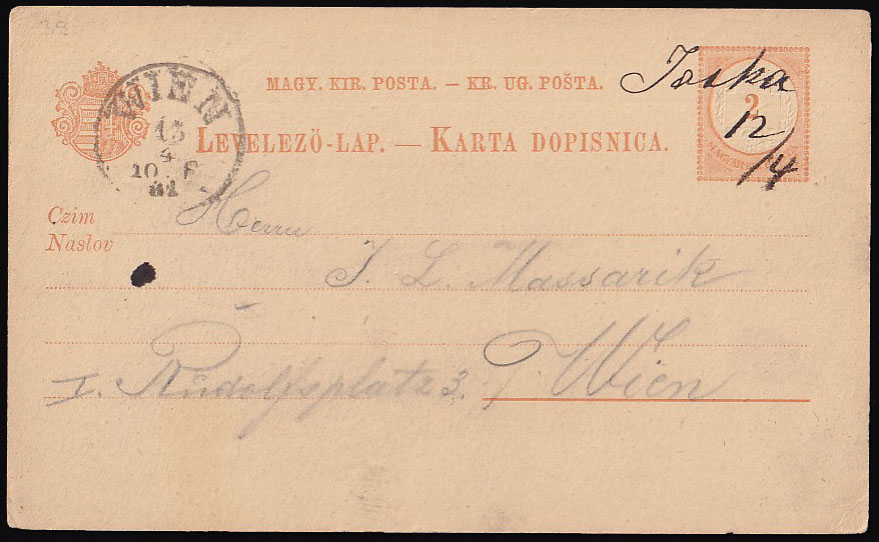 MAGY. KIR. POSTA. — KR. UG. POŠTA.
LEVELEZŐ-LAP. — KARTA DOPISNICA.
WIEN
13
4
10 F
81
2
12/4
Czim
Naslov
Herrn
J. L. Massarik
I. Rudolfsplatz 3. Wien